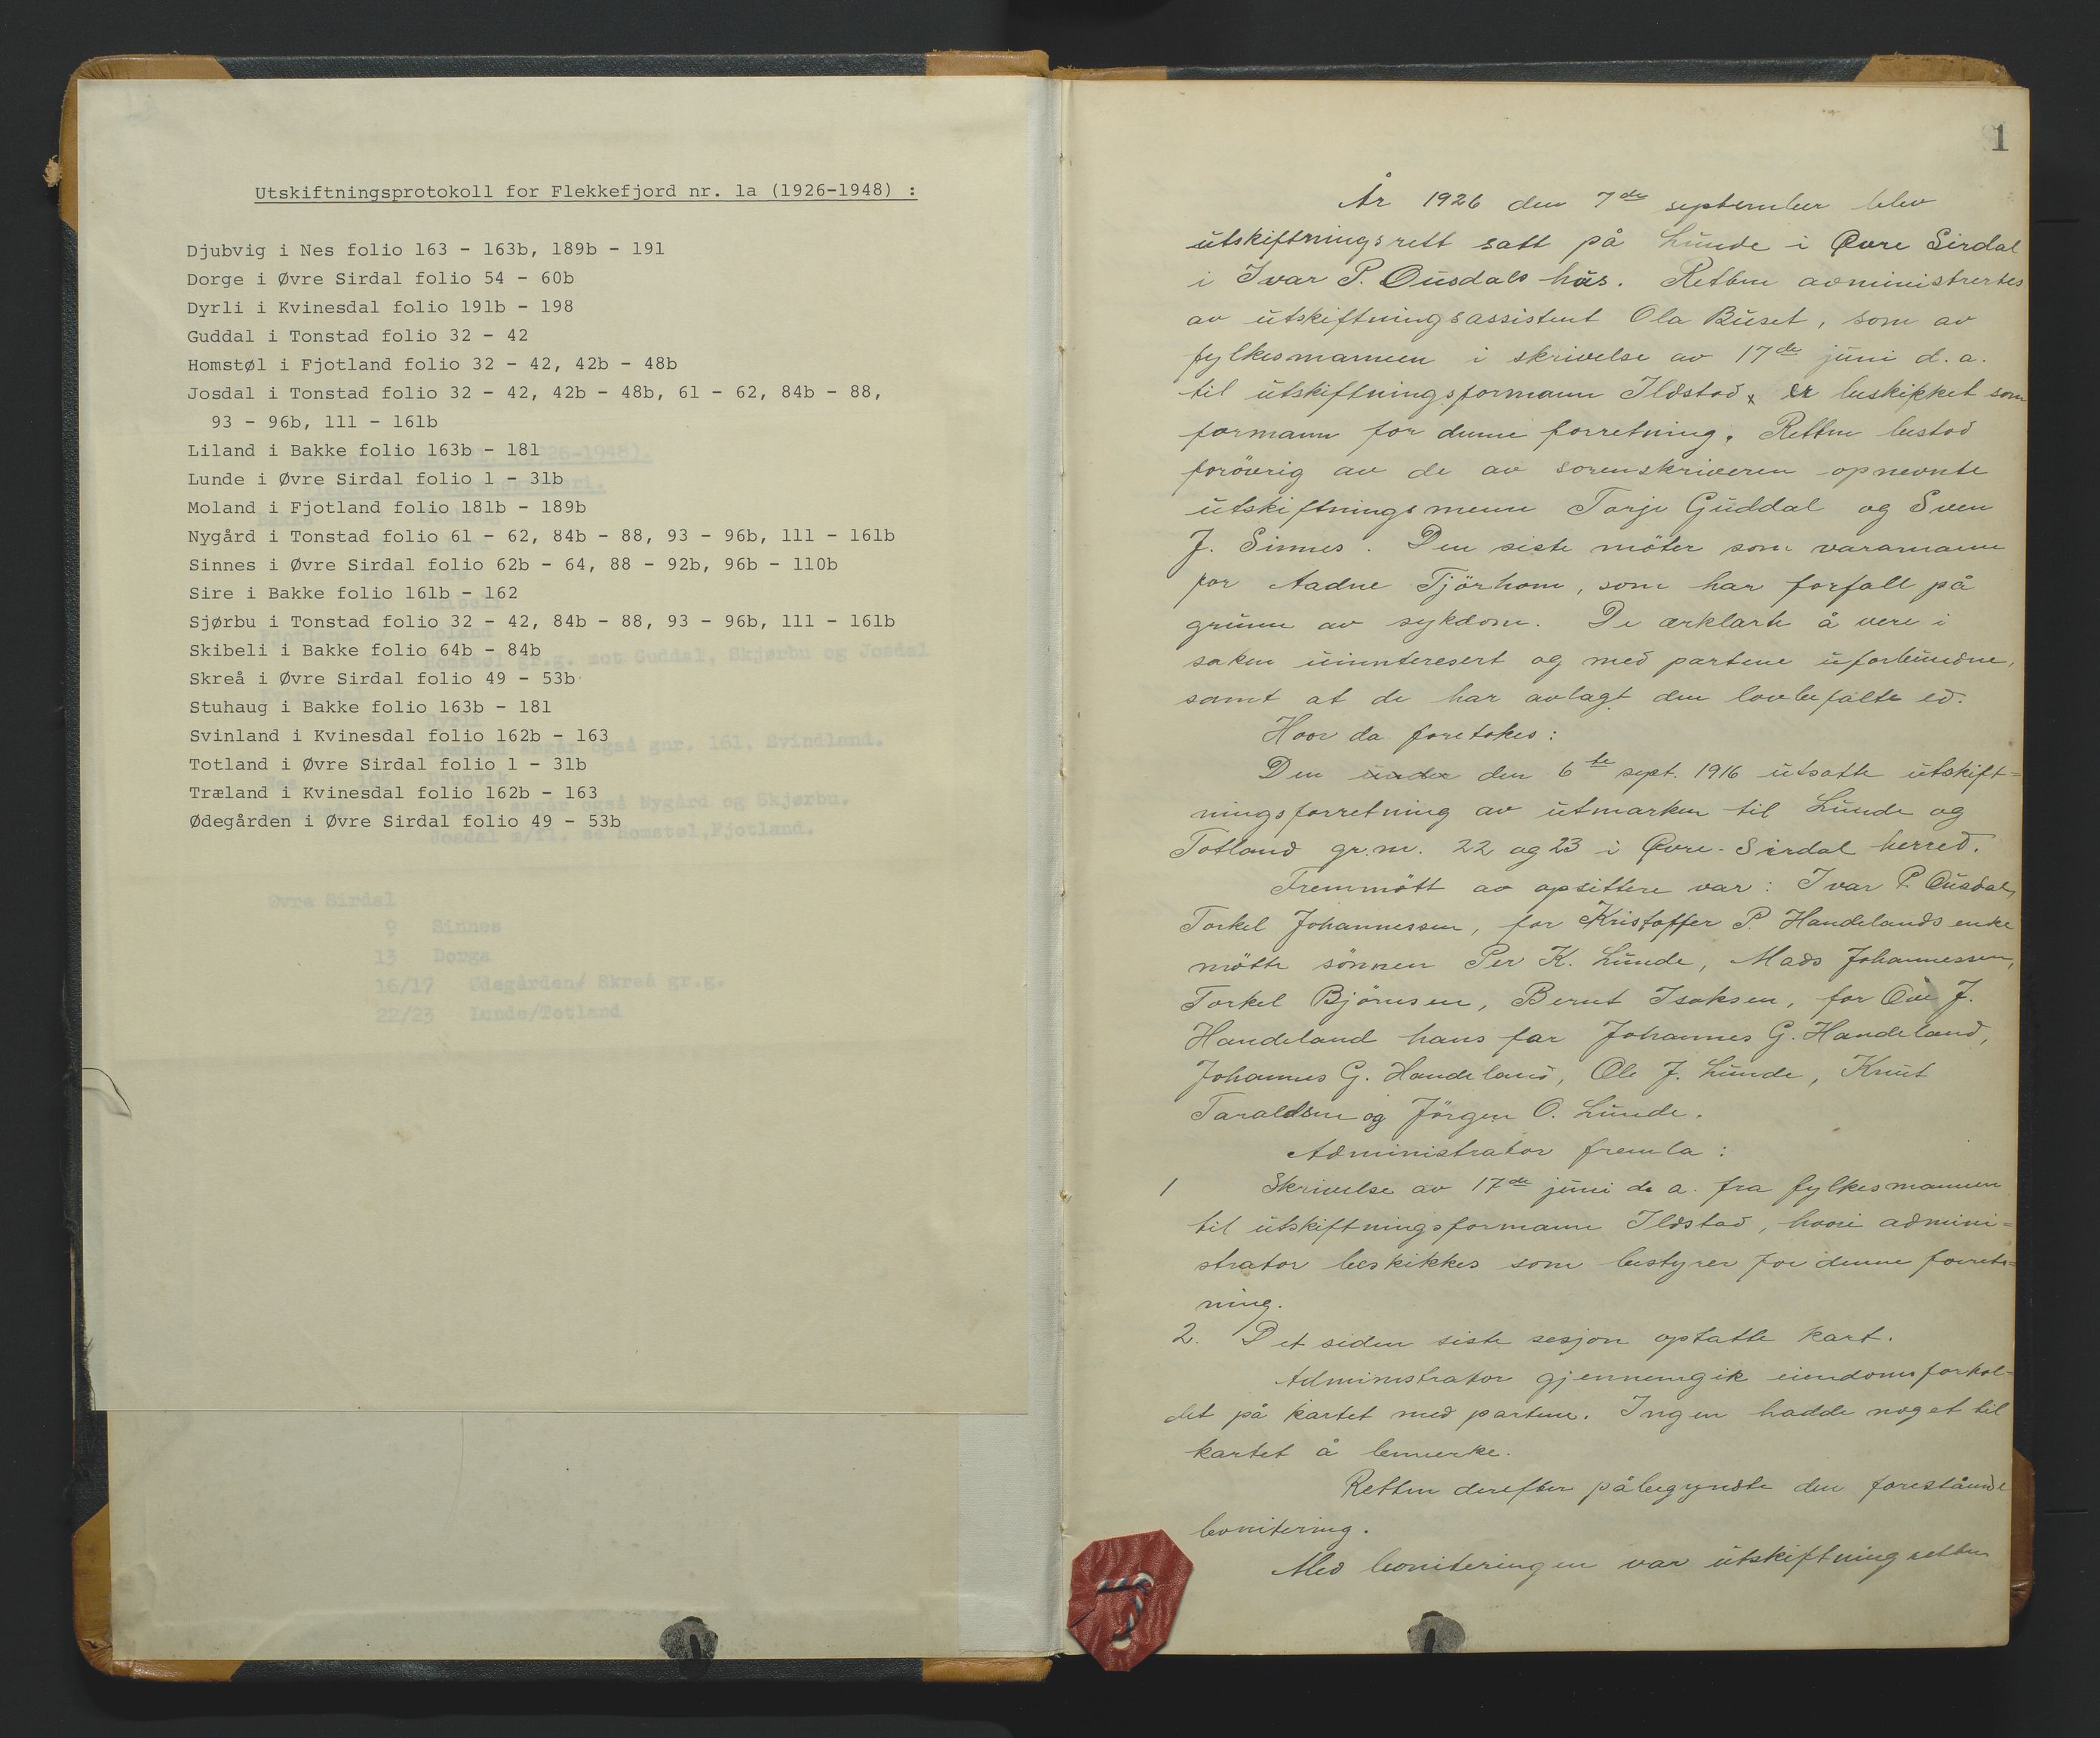 Utskiftningsprotokoll for Flekkefjord nr. 1a (1926-1948) :
Djubvig i Nes folio 163 - 163b, 189b - 191
Dorge i Øvre Sirdal folio 54 - 60b
Dyrli i Kvinesdal folio 191b - 198
Guddal i Tonstad folio 32 - 42
Homstøl i Fjotland folio 32 - 42, 42b - 48b
Josdal i Tonstad folio 32 - 42, 42b - 48b, 61 - 62, 84b - 88,
93 - 96b, 111 - 161b
Liland i Bakke folio 163b - 181
Lunde i Øvre Sirdal folio 1 - 31b
Moland i Fjotland folio 181b - 189b
Nygård i Tonstad folio 61 - 62, 84b - 88, 93 - 96b, 111 - 161b
Sinnes i Øvre Sirdal folio 62b - 64, 88 - 92b, 96b - 110b
Sire i Bakke folio 161b - 162
Sjørbu i Tonstad folio 32 - 42, 84b - 88, 93 - 96b, 111 - 161b
Skibeli i Bakke folio 64b - 84b
Skreå i Øvre Sirdal folio 49 - 53b
Stuhaug i Bakke folio 163b - 181
Svinland i Kvinesdal folio 162b - 163
Totland i Øvre Sirdal folio 1 - 31b
Træland i Kvinesdal folio 162b - 163
Ødegården i Øvre Sirdal folio 49 - 53b
Øvre Sirdal
9 Sinnes
13 Dorge
16/17 Ødegården/ Skreå gr.g.
22/23 Lunde/Totland
1
År 1926 den 7de september blev
utskiftningsrett satt på Lunde i Øvre Sirdal
i Ivar P. Ousdals hus. Retten administrertes
av utskiftningsassistent Ola Buset, som av
fylkesmannen i skrivelse av 17de juni d. a.
til utskiftningsformann Ildstad, er beskikket som
formann for denne forretning. Retten bestod
forövrig av de av sorenskriveren opnevnte
utskiftningsmenn Torje Guddal og Sven
J. Sinnes. Den siste möter som varamann
for Aadne Tjörhom, som har forfall på
grunn av sykdom. De erklærte å vere i
saken uinnteresert og med partene uforbundne,
samt at de har avlagt den lovbefalte ed.
Hvor da foretokes:
Den under den 6te sept. 1916 utsatte utskift=
ningsforretning av utmarken til Lunde og
Totland gr.nr. 22 og 23 i Øvre-Sirdal herred.
Fremmött av opsittere var: Ivar P. Ousdal,
Torkel Johannessen, for Kristoffer P. Handelands enke
mötte sönnen Per K. Lunde, Mads Johannessen,
Torkel Björnsen, Bernt Isaksen, for Ove J.
Handeland hans far Johannes G. Handeland,
Johannes G. Handeland, Ole J. Lunde, Knut
Taraldsen og Jörgen O. Lunde.
Administrator fremla:
1 Skrivelse av 17de juni d. a. fra fylkesmannen
til utskiftningsformann Ildstad, hvori admini=
strator beskikkes som bestyrer for denne forret=
ning.
2. Det siden siste sesjon optatte kart.
Administrator gjennemgik eiendomsforhol=
det på kartet med partene. Ingen hadde noget til
kartet å bemerke.
Retten derefter påbegyndte den forestående
bonitering.
Med boniteringen var utskiftningsretten